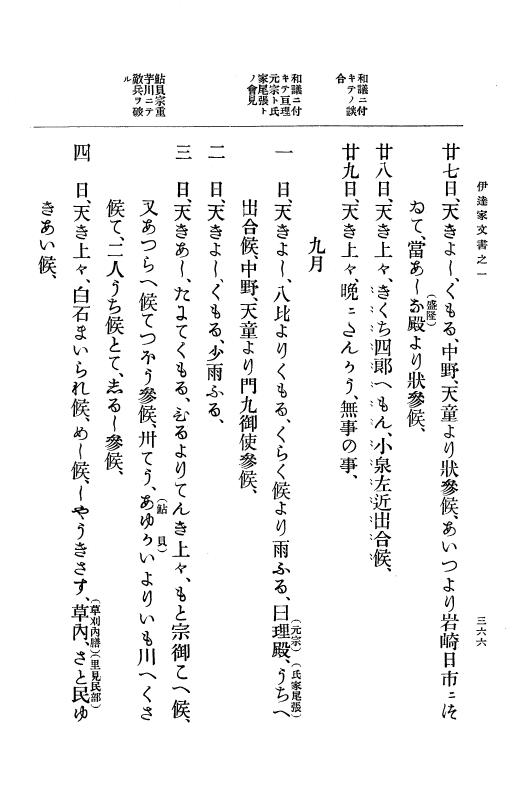 伊達家文書之一
三六六
廿七日、天きよ〳〵、くもる、中野、天童より狀參候、あいつより岩崎日市ニそ
ゐて、當あ〳〵な殿より狀參候、
(盛隆)
廿八日、天き上々、きくち四郎へもん、小泉左近出合候、
廿九日、天き上々、晩ニさんかう、無事の事、
和議ニ付
キテノ談
合
九月
一 日、天きよ〳〵、八比よりくもる、くらく候より雨ふる、日理殿、うちへ
(元宗)
(氏家尾張)
出合候、中野、天童より門九御使參候、
和議ニ付
キテ亘理
元宗ト氏
家尾張ト
ノ會見
二 日、天きよ〳〵、くもる、少雨ふる、
三 日、天きあ〳〵、たゝてくもる、ひるよりてんき上々、もと宗御こへ候、
又あつらへ候てつほう參候、卅てう、あゆかいよりいも川へくさ
(鮎貝)
候て、二人うち候とて、志る〳〵參候、
鮎貝宗重
芋川ニテ
敵兵ヲ破
ル
四 日、天き上々、白石まいられ候、め〳〵候、〳〵やうきさす、草內、さと民ゆ
(草刈內膳)
(里見民部)
きあい候、